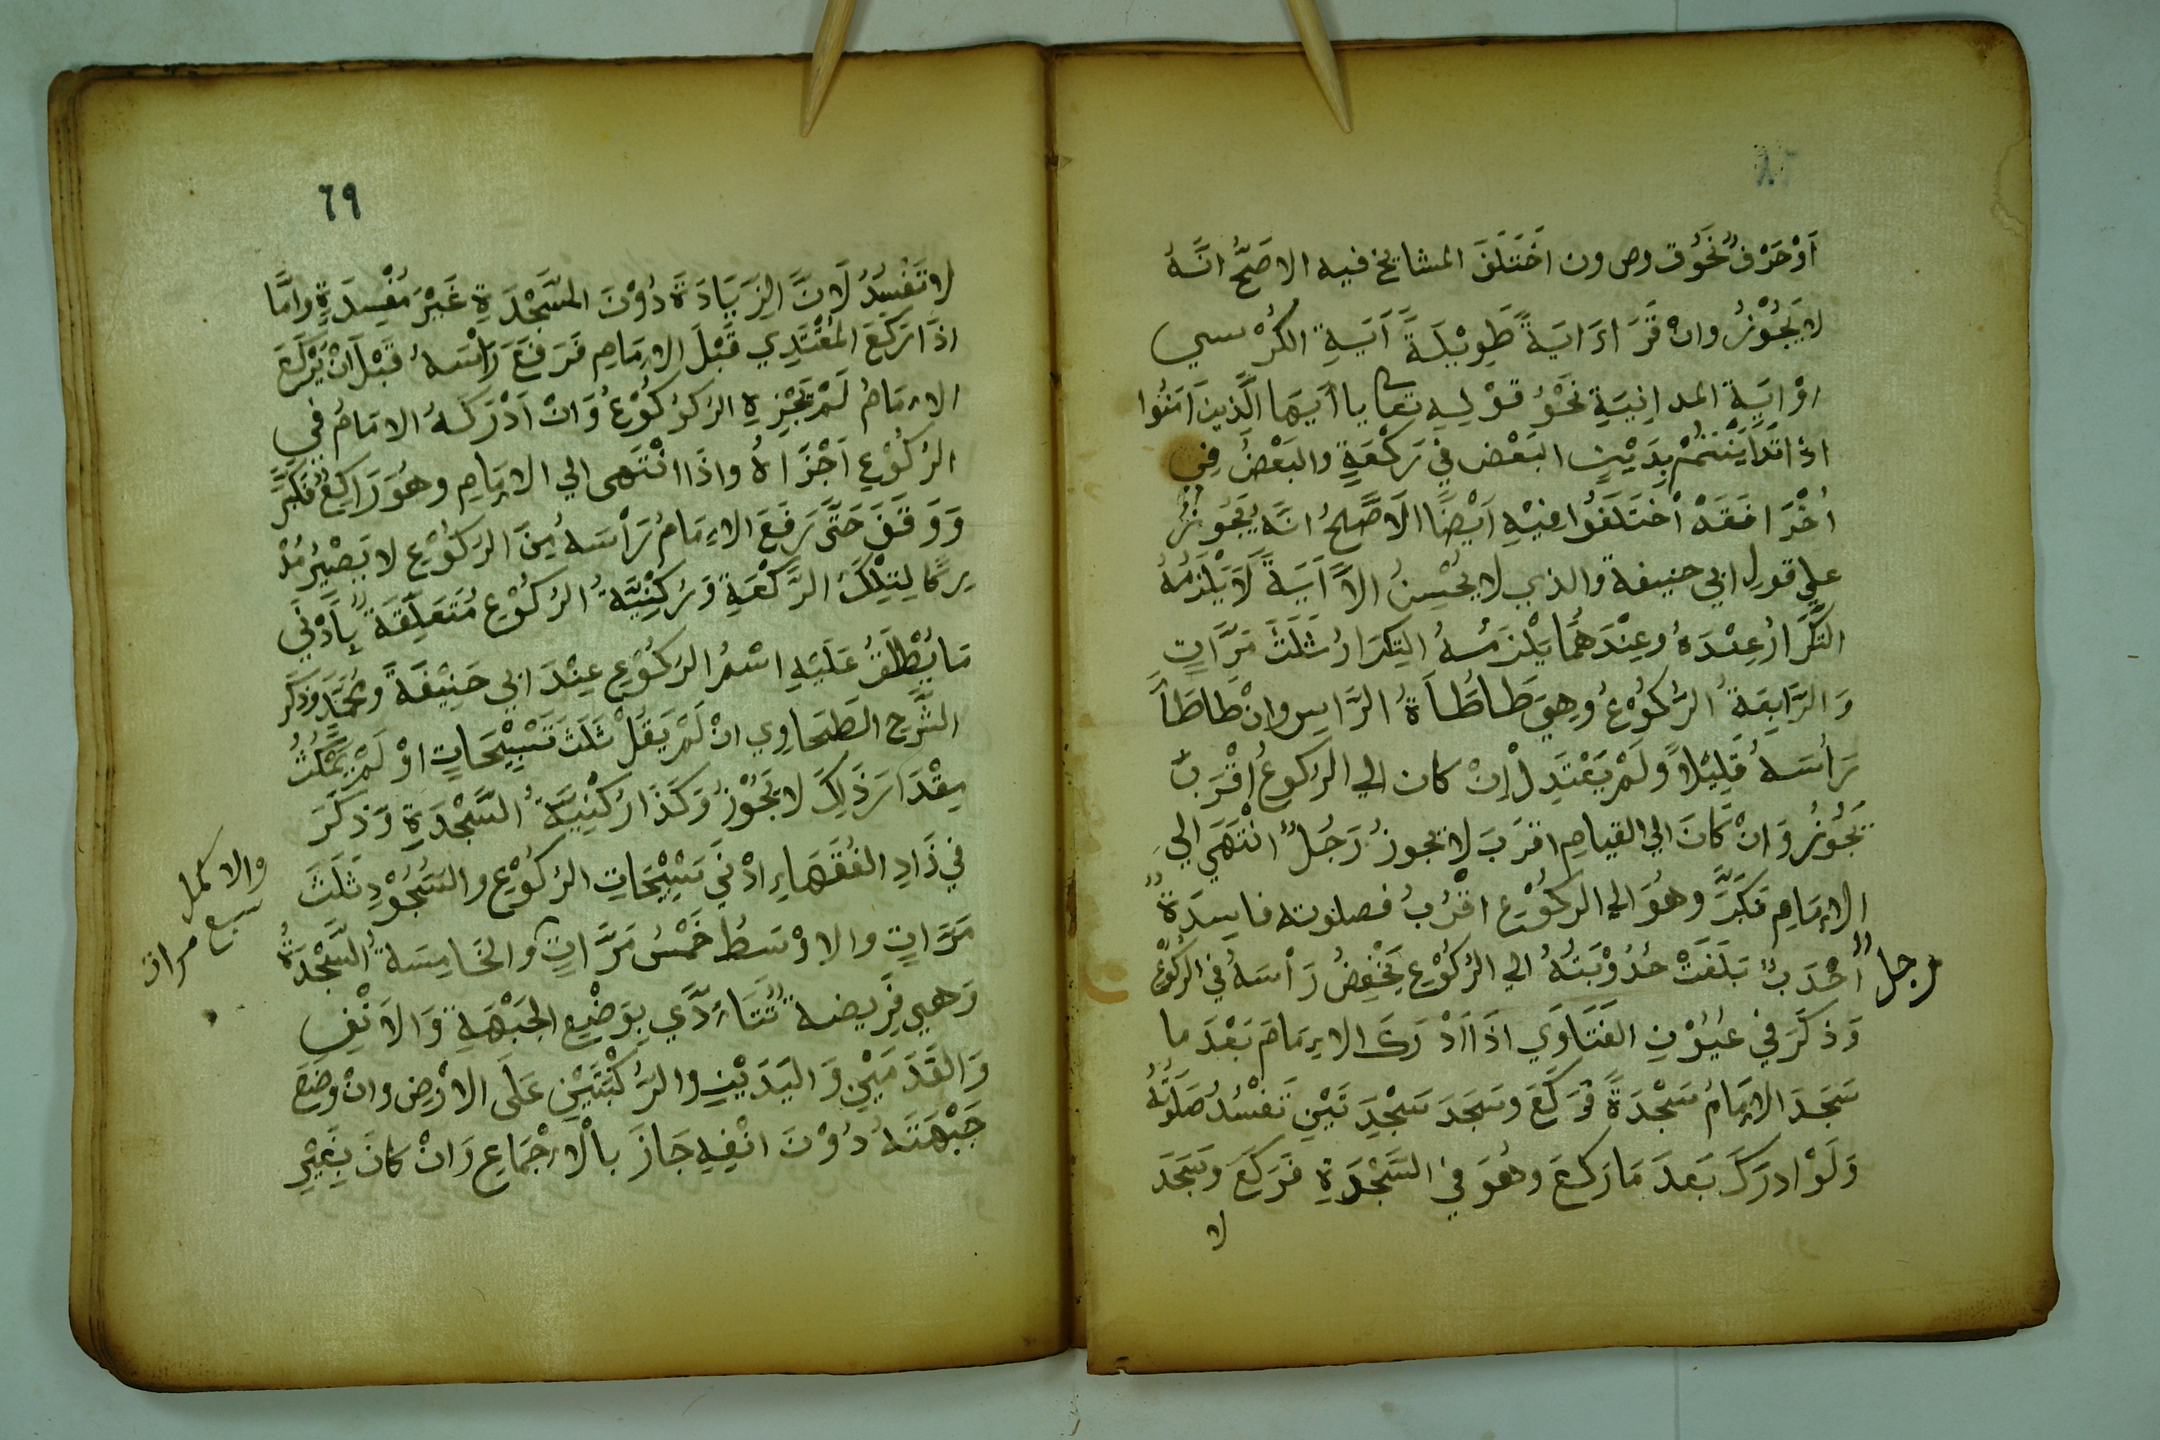 اَوْحَرْفٌ نَحْوُ ق وص ون اَخْتَلَفَ المشايخ فيه الاصَحُّ انَّهُ
لا يَجُوْزُ وانْ قَرَاءَ ايَةً طَوِيْلَةً اَيَةِ الكُرْسي
اوْ ايَةِ المداينِيَةِ نَحْوُ قوْلِهِ تعا يا اَيّهَا الَّذِينَ اَمَنُوا
اذَا تَدَايَنْتُمْ بِدَيْنٍ البَعْض في رَكْعَةٍ والبَعْضُ فِي
اُخْرَا فَقَدْ اخْتَلَفُوا فِيْهِ اَيْضًا الاَصَّحُ انَّهُ يَجُوزُ
علي قول ابي حنيفة والذي لا يُحْسِنُ الاَّ اَيَةً لَا يَلْزَمُهُ
التَّكْرَارُ عِنْدَهُ وعِنْدَهُمَا يَلْزَمُهُ التِكرَارُ ثَلَثَ مَرَّاتٍ
وَالرَّابِعَةُ الرُّكُوْعُ وهِيَ طَاطَاَةُ الرَّاسِ وانْ طَاطَاَ
رَأسَهُ قَلِيْلاً ولَمْ يَعْتَدِلْ اِنْ كان الي الركوعُ اقْرَبُ
يَجُوْزُ وَانْ كَانَ الي القيامِ اقرَبَ لا يجوزُ رَجُلٌ انْتَهَي الي
الاِمَامِ فكَبَّرَ وهُوَ الي الركُوْعِ اقْرَبُ فصلوته فاسِدَةٌ
رجل اَحْدَبٌ بَلَغَتْ حُدُوْبَتُهُ الي الرُكُوْعِ يَخْفِضُ رَاْسَهُ في الركُوْعِ
وَذكَرَ في عُيُوْنِ الفَتَاوَي اذَا اَدْرَكَ الاِمَامَ بَعْدَ ما
سَجَدَ الاِمَامُ سَجْدَةً فَرَكَعَ وسَجَدَ سَجْدَتَيْنِ تَفْسُدُ صَلَوتُهُ
وَلَوْ ادرَكَ بَعدَ مَا ركعَ وهُوَ في السَّجْدَةِ فَرَكَعَ وسَجَدَ
لا
٦٩
لا تَفْسِدُ لاَنَّ الزِيَادَةَ دُوْنَ السَّجْدَةِ غَيْرَ مُفْسِدَةٍ وامَّا
اذَا رَكَعَ المُقْتَدِي قَبْلَ الاِمَامِ فَرَفَعَ رَاْسَهُ قَبْلَ اَنْ يَرْكَعَ
الاِمَامُ لَمْ يَجْزِهِ الركُوْعُ وَانْ اَدْرَكَهُ الامَامُ في
الرُكُوْعِ اَجْزَاهُ واذَا انْتَهى الي الاِمَامِ وهُوَ رَاكِعٌ فكَبَّرَ
وَوَقَفَ حَتَّى رَفَعَ الاِمَامُ رَأْسَهُ مِنَ الركُوْعِ لا يَصْيِرُ مُدْ
رِكًا لِتِلْكَ الرَّكْعَةِ وَرُكْنِيَّةُ الرُكُوْعِ مُتَعَلِّقَةٌ بِاَدْنَي
مَا يُطْلَقُ عَلَيْهِ اسْمُ الركُوْعِ عِنْدَ ابي حَنِيْفَةَ ومُحَمَّدٍ وذكَر
الشَّرحِ الطَحَاوِي انْ لَمْ يَقُلْ ثَلَثَ تَسْبِيْحَاتٍ اوْ لَمْ يَمْكُثْ
مِقْدَارَ ذَلِكَ لا يَجُوْزُ وَكَذَا رُكْنِيَّةُ السَّجْدَةِ وَذكَرَ
في زَادِ الفُقَهَاءِ ادْنَي تَسْبِيْحَاتِ الركُوْعِ والسُجُوْدِ ثَلَثَ
مَرَّاتٍ والاوْسَطُ خَمْسُ مَرَّاتٍ والخَامِسَةُ السَّجْدَةُ
والاكمل
سبع مرات
وَهيي فَرِيضةٌ تَتَاَدَّي بِوَضْعِ الجَبْهَةِ وَالاَنْفِ
وَالقَدَمَيْنِ وَاليَدَيْنِ والرُّكْبَتَيْنِ عَلَى الاَرْضِ وانْ وضَعَ
جَبْهَتَهُ دُوْنَ انْفِهِ جَازَ بالْاِجْمَاعِ وَانْ كانَ بِغَيْرِ